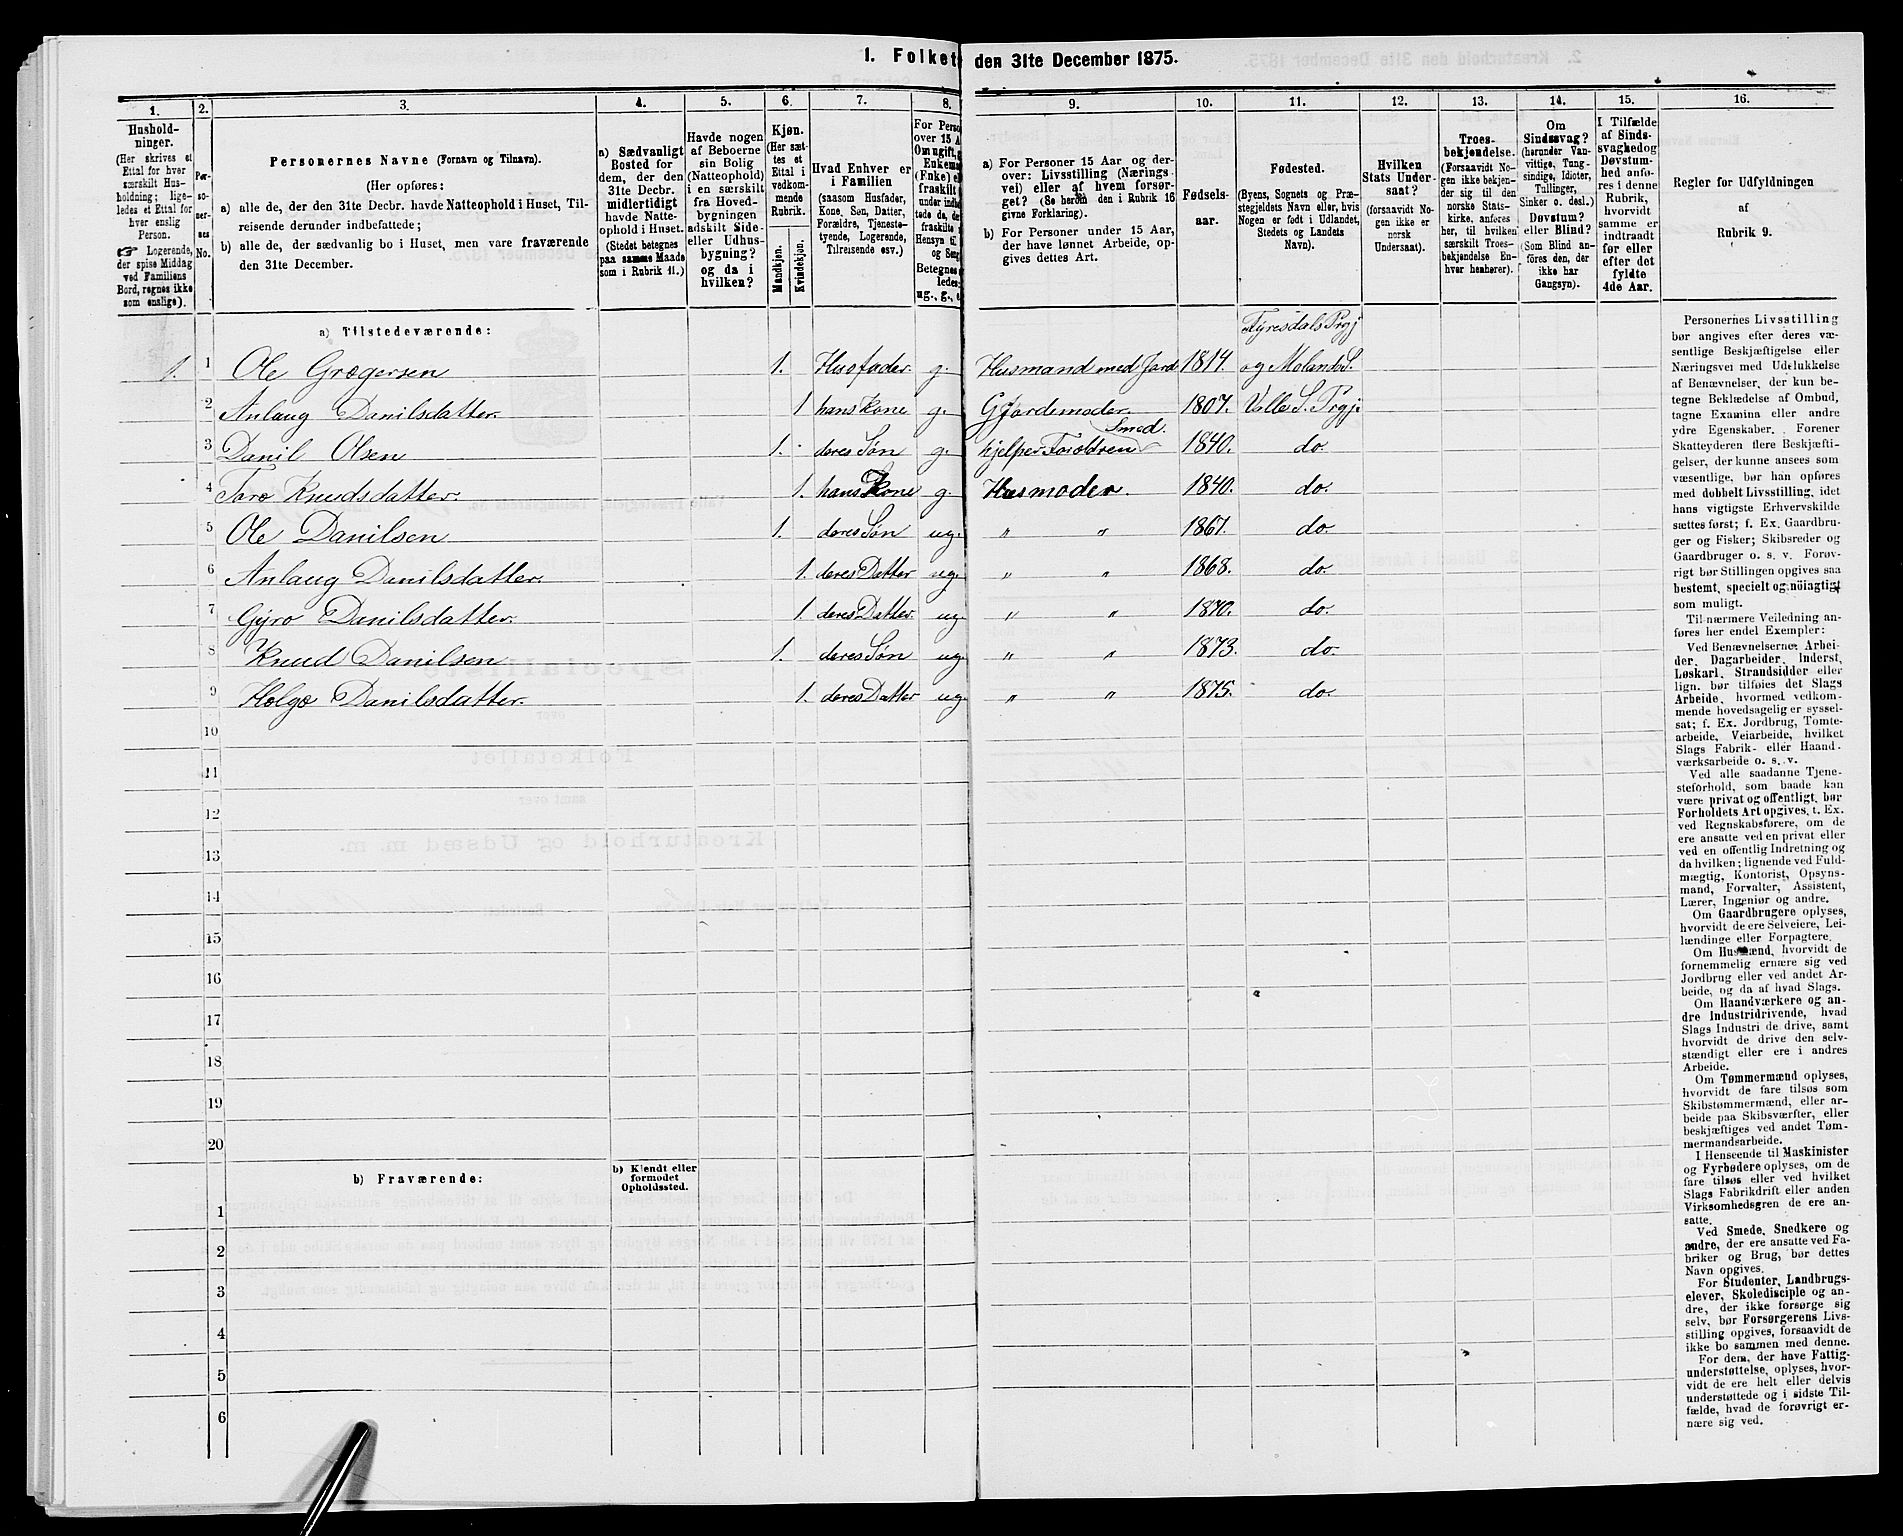 1. Folket den 31te December 1875.
1. 2. 3. 4. 5. 6. 7. 8. 9. 10. 11. 12. 13. 14. 15. 16.
Hushold-
ninger.
(Her skrives et
Ettal for hver
særskilt Hus-
holdning; lige-
ledes et Ettal for
hver enslig
Person.
☞ Logerende,
der spise Middag
ved Familiens
Bord, regnes ikke
som enslige).
Per-
so-
ner-
nes
No.
Personernes Navne (Fornavn og Tilnavn).
(Her opføres:
a) alle de, der den 31te Decbr. havde Natteophold i Huset, Til-
reisende derunder indbefattede;
b) alle de, der sædvanlig bo i Huset, men vare fraværende
den 31te December.
a) Sædvanligt
Bosted for
dem, der den
31te Decbr.
midlertidigt
havde Natte-
ophold i Huset.
(Stedet betegnes
paa samme Maade
som i Rubrik 11.)
Havde nogen
af Beboerne
sin Bolig
(Natteophold)
i en særskilt
fra Hoved-
bygningen
adskilt Side-
eller Udhus-
bygning?
og da i
hvilken?
Kjøn.
(Her sæt-
tes et
Ettal i
vedkom-
mende
Rubrik.
Mandkjøn.
Kvindekjøn.
Hvad Enhver er
i Familien
(saasom Husfader,
Kone, Søn, Datter,
Forældre, Tjeneste-
tyende, Logerende,
Tilreisende osv.)
For Perso
over 15 A
Om ugift, g
Enkema
(Enke) e
fraskilt
under indb
tede de, de
fraskilte
Hensyn ti
og Sen
Betegnes
ledes:
ug., g., e
a) For Personer 15 Aar og der-
over: Livsstilling (Nærings-
vei) eller af hvem forsør-
get? (Se herom den i Rubrik 16
givne Forklaring).
b) For Personer under 15 Aar,
der have lønnet Arbeide, op-
gives dettes Art.
Fødsels-
aar.
Fødested.
(Byens, Sognets og Præ-
stegjeldets Navn eller, hvis
Nogen er født i Udlandet,
Stedets og Landets
Navn).
Hvilken
Stats Under-
saat?
(forsaavidt No-
gen ikke er
norsk
Undersaat).
Troes-
bekjendelse.
(Forsaavidt No-
gen ikke bekjen-
der sig til den
norske Stats-
kirke, anføres
her, til hvilken
særskilt Troes-
bekjendelse En-
hver henhører).
Om
Sindssvag?
(herunder Van-
vittige, Tung-
sindige, Idioter,
Tullinger,
Sinker o. desl.)
Døvstum?
eller Blind?
(Som Blind an-
føres den, der
ikke har
Gangsyn).
I Tilfælde
af Sinds-
svaghed og
Døvstum-
hed anfø-
res i denne
Rubrik,
hvorvidt
samme er
indtraadt
før eller
efter det
fyldte
4de Aar.
Regler for Udfyldningen
af
Rubrik 9.
a) Tilstedeværende:
Fyresdals Prgj
1. 1 Ole Grogersen 1. Husfader g. Husmand med Jord 1814. og Molands S.
2 Anlaug Danilsdatter. 1 hans Kone g. Gjordemoder 1807. Valle S. Prgj.
Smed.
3 Danil Olsen 1. deres Søn g. hjelper Foroldren 1840. do.
4 Taro Knudsdatter. 1. hans Kone g. Husmoder. 1840. do.
5 Ole Danilsen 1. deres Søn ug. " " 1867. do.
6 Anlaug Danilsdatter. 1. deres Datter ug. " " 1868. do.
7 Gyro Danilsdatter. 1. deres Datter. ug. " " 1870. do.
8 Knud Danilsen 1. deres Søn ug. " " 1873. do.
9 Holgo Danilsdatter. 1. deres Datter ug. " " 1875. do.
10
11
12
13
14
15
16
17
18
19
20
b) Fraværende:
b) Kjendt eller
formodet
Opholdssted.
1
2
3
4
5
6
Personernes Livsstilling
bør angives efter deres væ-
sentlige Beskjæftigelse eller
Næringsvei med Udelukkelse
af Benævnelser, der kun be-
tegne Beklædelse af Ombud,
tagne Examina eller andre
ydre Egenskaber. Forener
Skatteyderen flere Beskjæfti-
gelser, der kunne ansees som
væsentlige, bør han opføres
med dobbelt Livsstilling, idet
hans vigtigste Erhvervskilde
sættes først; f. Ex. Gaardbru-
ger og Fisker; Skibsreder og
Gaardbruger o. s. v. Forøv-
rigt bør Stillingen opgives saa
bestemt, specielt og nöiagtigt
som muligt.
Til nærmere Veiledning an-
føres her endel Exempler:
Ved Benævnelserne: Arbei-
der, Dagarbeider, Inderst,
Løskarl, Strandsidder eller
lign. bør tilføies det Slags
Arbeide, hvormed vedkom-
mende hovedsagelig er syssel-
sat; f. Ex. Jordbrug, Tomte-
arbeide, Veiarbeide, hvilket
Slags Fabrik- eller Haand-
værksarbeide o. s. v.
Ved alle saadanne Tjene-
steforhold, som baade kan
være privat og offentligt, bør
Forholdets Art opgives, t. Ex.
ved Regnskabsførere, om de
ere ansatte ved en privat eller
ved en offentlig Indretning og
da hvilken; lignende ved Fuld-
mægtig, Kontorist, Opsyns-
mand, Forvalter, Assistent,
Lærer, Ingeniør og andre.
Om Gaardbrugere oplyses,
hvorvidt de ere Selveiere, Lei-
lændinge eller Forpagtere.
Om Husmænd, hvorvidt de
fornemmelig ernære sig ved
Jordbrug eller ved andet Ar-
beide, og da af hvad Slags.
Om Haandværkere og an-
dre Industridrivende, hvad
Slags Industri de drive, samt
hvorvidt de drive den selv-
stændigt eller ere i andres
Arbeide.
Om Tømmermænd oplyses,
hvorvidt de fare tilsøs som
Skibstømmermænd, eller ar-
beide paa Skibsværfter, eller
beskjæftiges ved andet Tøm-
mermandsarbeide.
I Henseende til Maskinister
og Fyrbødere oplyses, om de
fare tilsøs eller ved hvilket
Slags Fabrikdrift eller anden
Virksomhedsgren de ere an-
satte.
Ved Smede, Snedkere og
andre, der ere ansatte ved Fa-
briker og Brug, bør dettes
Navn opgives.
For Studenter, Landbrugs-
elever, Skoledisciple og an-
dre, der ikke forsørge sig
selv, bør Forsørgerens Livs-
stilling opgives, forsaavidt de
ikke bo sammen med denne.
For dem, der have Fattig-
understøttelse, oplyses, hvor-
vidt de ere helt eller delvis
understøttede og i sidste Til-
fælde, hvad de forøvrigt er-
nære sig ved.